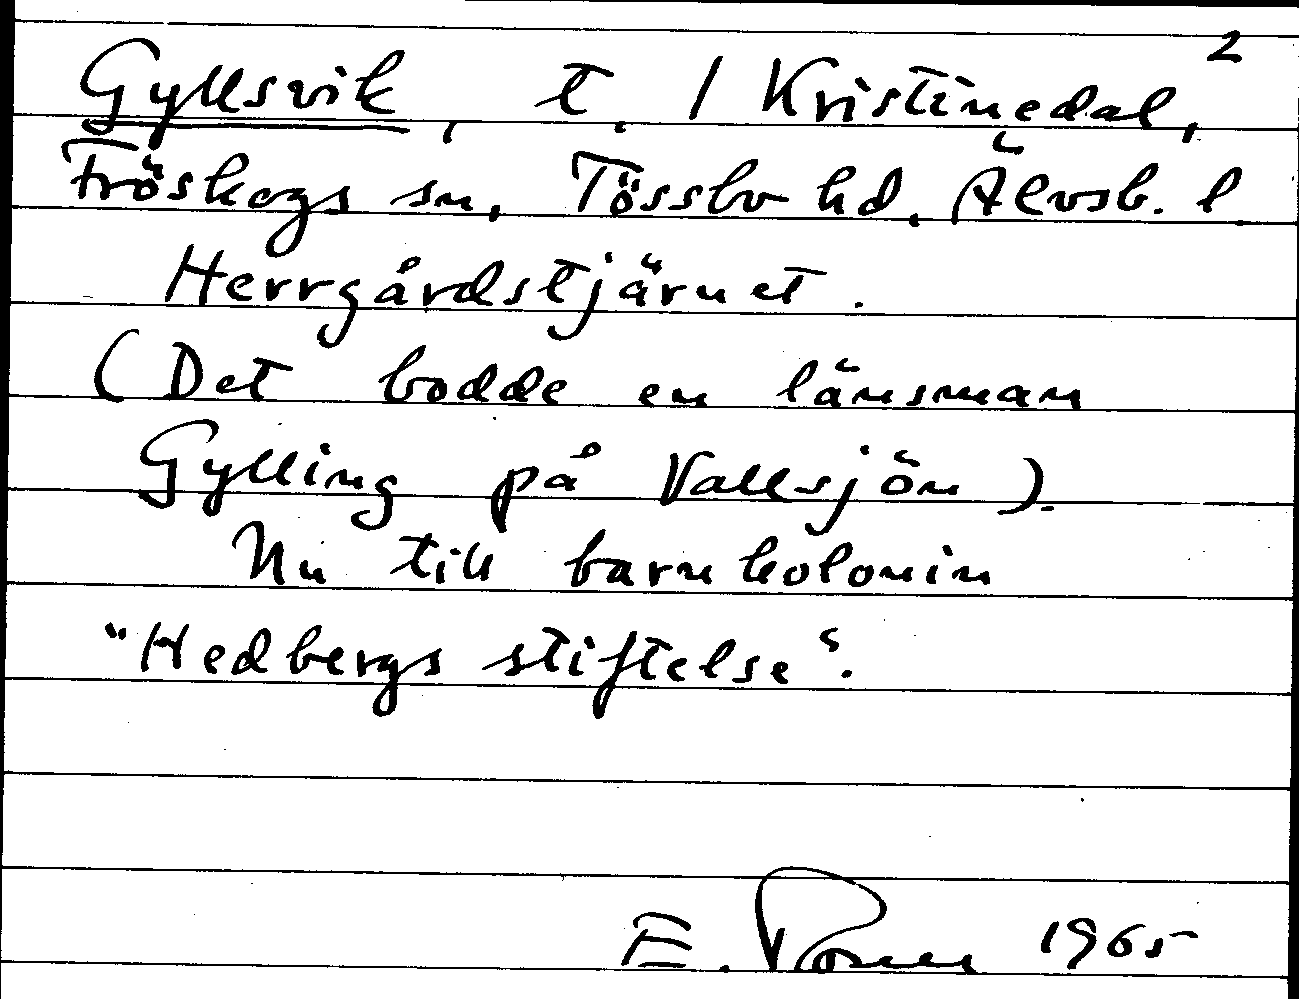 2
Gyllsvik, t. 1 Kristinedal,
Fröskogs sn, Tössbo hd, Älvsb. l.
Herrgårdstjärnet.
(Det bodde en länsman
Gylling på Vallsjön).
Nu till barnkolonin
"Hedbergs stiftelse".
E. 1965